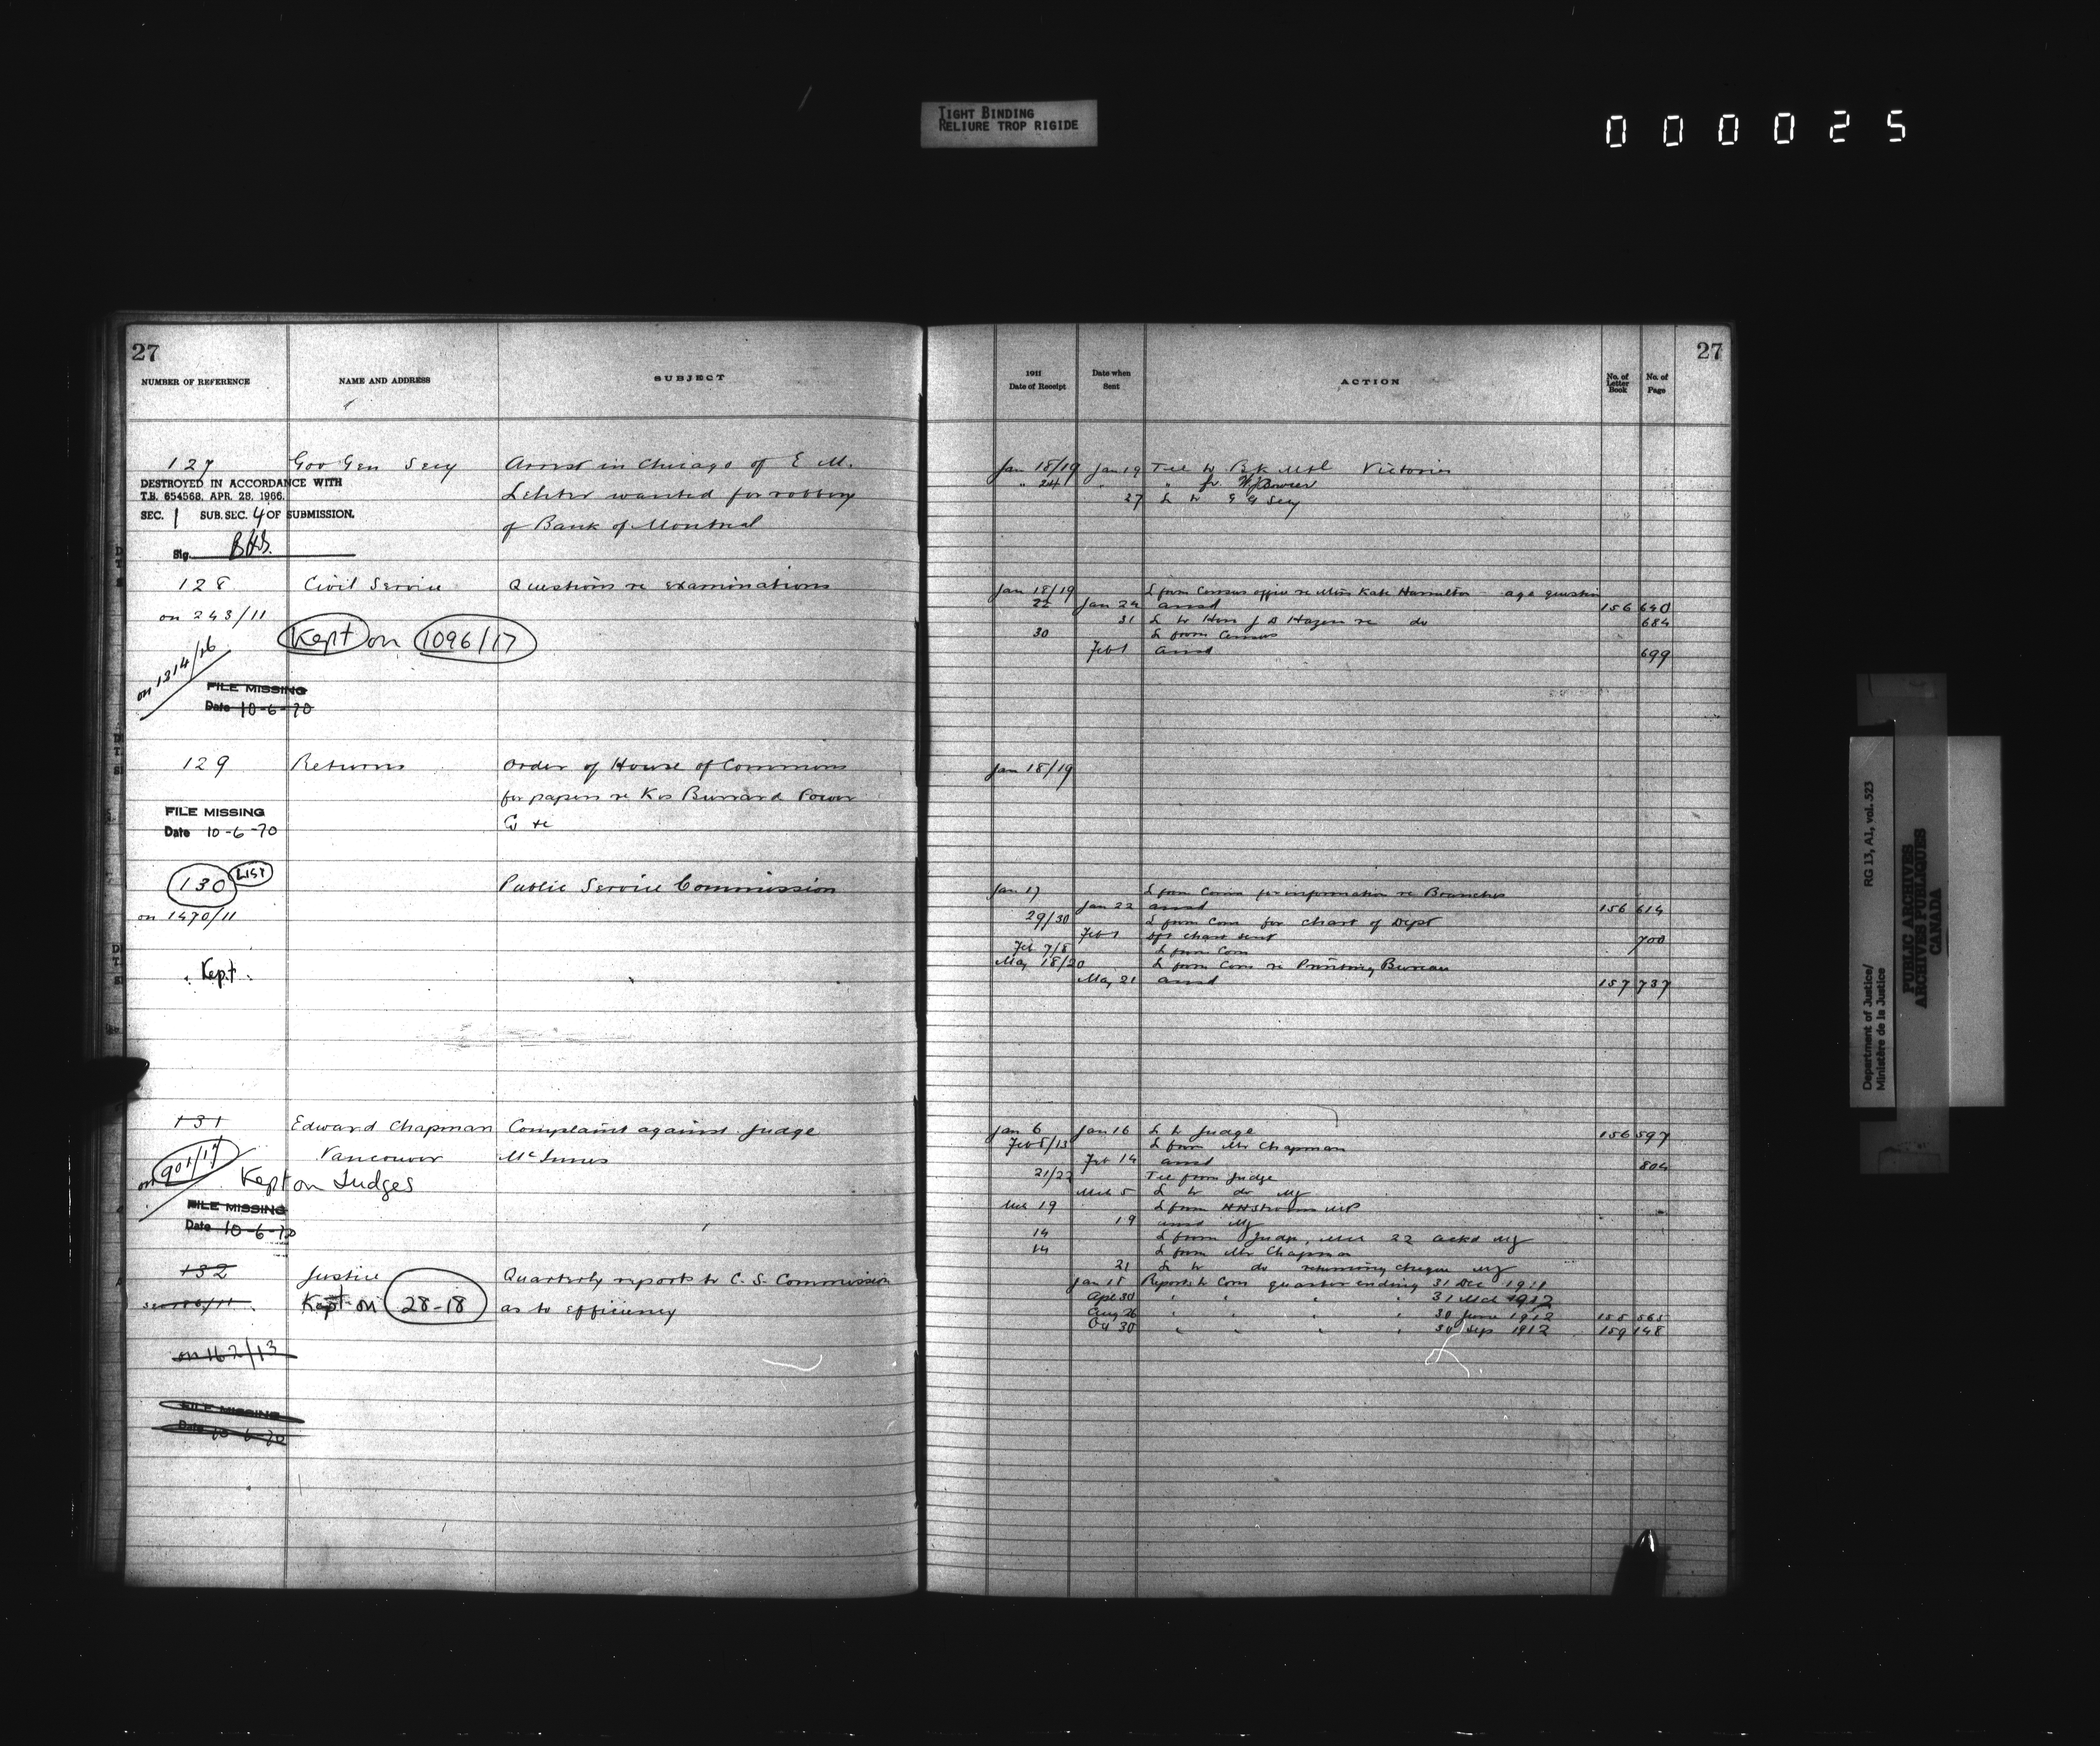 TIGHT BINDING
RELIURE TROP RIGIDE
000025
27
NUMBER OF REFERENCE
NAME AND ADDRESS
SUBJECT
127 Gov Gen Secy Arrest in Chicago of E M.
wanted for robbery
of Bank of Montreal
DESTROYED IN ACCORDANCE WITH
T.B. 654568, APR. 28, 1966.
SEC. 1 SUB. SEC. 4 OF SUBMISSION.
Sig.
128 Civil Service Questions re examinations
on 243/11
Kept on 1096/17
on 1314/26
FILE MISSING
Date 10-6-70
129 Returns Order of House of Commons
for papers re Burrard Power
Co &c
FILE MISSING
Date 10-6-70
130 LIST Public Service Commission
on 1470/11
Kept
131 Edward Chapman Complaint against Judge
Vancouver McInnes
on 901/17
Kept on Judges
FILE MISSING
Date 10-6-70
132 Justice Quarterly reports to C. S. Commission
Kept on 28-18 as to efficiency
on 162/13
FILE MISSING
Date 10-6-70
27
1911
Date of Receipt
Date when
Sent
ACTION
No. of
Letter
Book
No. of
Page
Jan 18/19 Jan 19 Tel to Bk Mtl Victoria
" 24 " fr W J Bowser
27 L to G G Secy
Jan 18/19 L from Census office re Miss Kate Hamilton age question
22 Jan 24 ansd 156 640
31 L to Hon J D Hazen re do 684
30 L from Census
Feb 1 ansd 699
Jan 18/19
Jan 17 L from Comn for information re Branches
Jan 22 ansd 156 614
29/30 L from Com for chart of Dept
Feb 1 chart sent 700
Feb 7/8 L from Com
May 18/20 L from Com re Printing Bureau
May 21 ansd 157 737
Jan 6 Jan 16 L to Judge 156 597
Feb 8/13 L from Mr Chapman
Feb 14 ansd 804
21/22 Tel from Judge
Mch 5 L to do
Mch 19 L from H H Stevens MP
19 ansd
14 L from Judge, Mch 22 ackd
14 L from Mr Chapman
21 L to do returning cheque
Jan 18 Reports to Com quarter ending 31 Dec 1911
Apl 30 " " " " 31 Mch 1912
Aug 26 " " " " 30 June 1912 158 565
Oct 30 " " " " 30 Sep 1912 159 148
Department of Justice/
Ministère de la Justice
RG 13, A1, vol. 523
PUBLIC ARCHIVES
ARCHIVES PUBLIQUES
CANADA